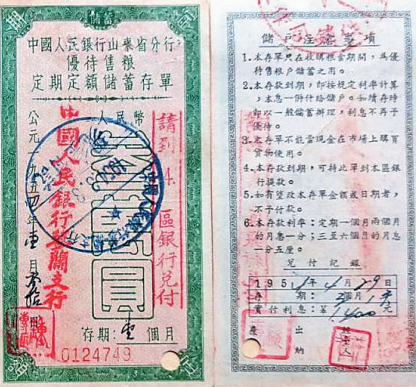 儲蓄
中國人民銀行山東省分行
優待售糧
定期定額儲蓄存單
人民幣
公元一九五四年壹月
中國人民銀行
請到4區銀行兑付
圓
存期：壹個月
0124749
儲戶注意事項
1.本存單只在收購糧食期間，為優
待售糧户儲蓄之用。
2.本存款到期，即按規定利率計算
，本息一併付給儲户。如續存時
即以一般儲蓄辦理，利息不再予
優待。
3.本存單不能當現金在市場上購買
貨物使用。
4.本存款到期，可持此單到本區銀
行提款。
5.如有塗改本存單金額或日期者，
不予付款。
6.本存款利率：定期一個月兩個月
的月息一分；三至六個月的月息
一分五厘。
兑付記錄
195 年4月29日
存期：
實付利息：1400元
出納